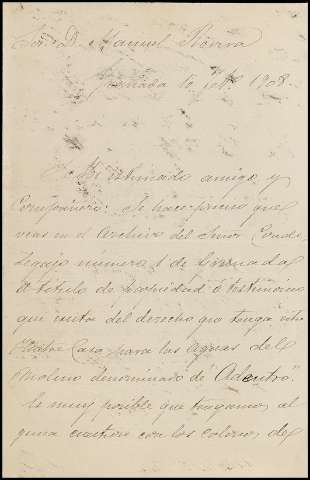 Sor. D. Manuel Rivera
Granada 10 Feb. 1908.
Mi estimado amigo y
Compañero: Se hace preciso que
veas en el Archivo del Señor Conde,
Legajo numero 1 de Granada
el titulo de propiedad ó testimonio
que exista del derecho que tenga
Casa para las Aguas del
Molino denominado de "Adentro"
Es muy posible que tengamos al
guna cuestion con los colonos de